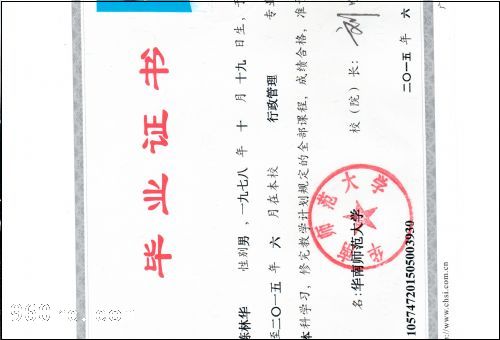 毕业证书
陈林华 性别男，一九七八年 十 月 十九 日生，于
至二〇一五年 六 月在本校 行政管理 专业
本科学习，修完教学计划规定的全部课程，成绩合格，准
名：华南师范大学 校（院）长：
105747201505003930 二〇一五年 六
://www.chsi.com.cn